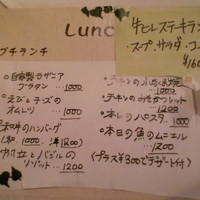 Lunc
プチランチ
○自家製ラザニア
グラタン … 1000
○えびとチーズの
オムレツ 1000
ハンバーグ
1000 1200
とバジルの
リゾット … 1200
チキンの
… 1000
チキンのカツレット
… 1200
○本日のパスタ … 1000
○本日の魚のムニエル
… 1200
(プラス¥300でデザート付)
牛ヒレステーキラン
・スープ・サラダ・コー
¥160